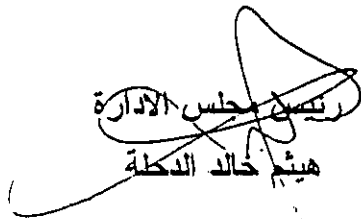 رئيس مجلس الادارة
هيثم خالد الدحلة